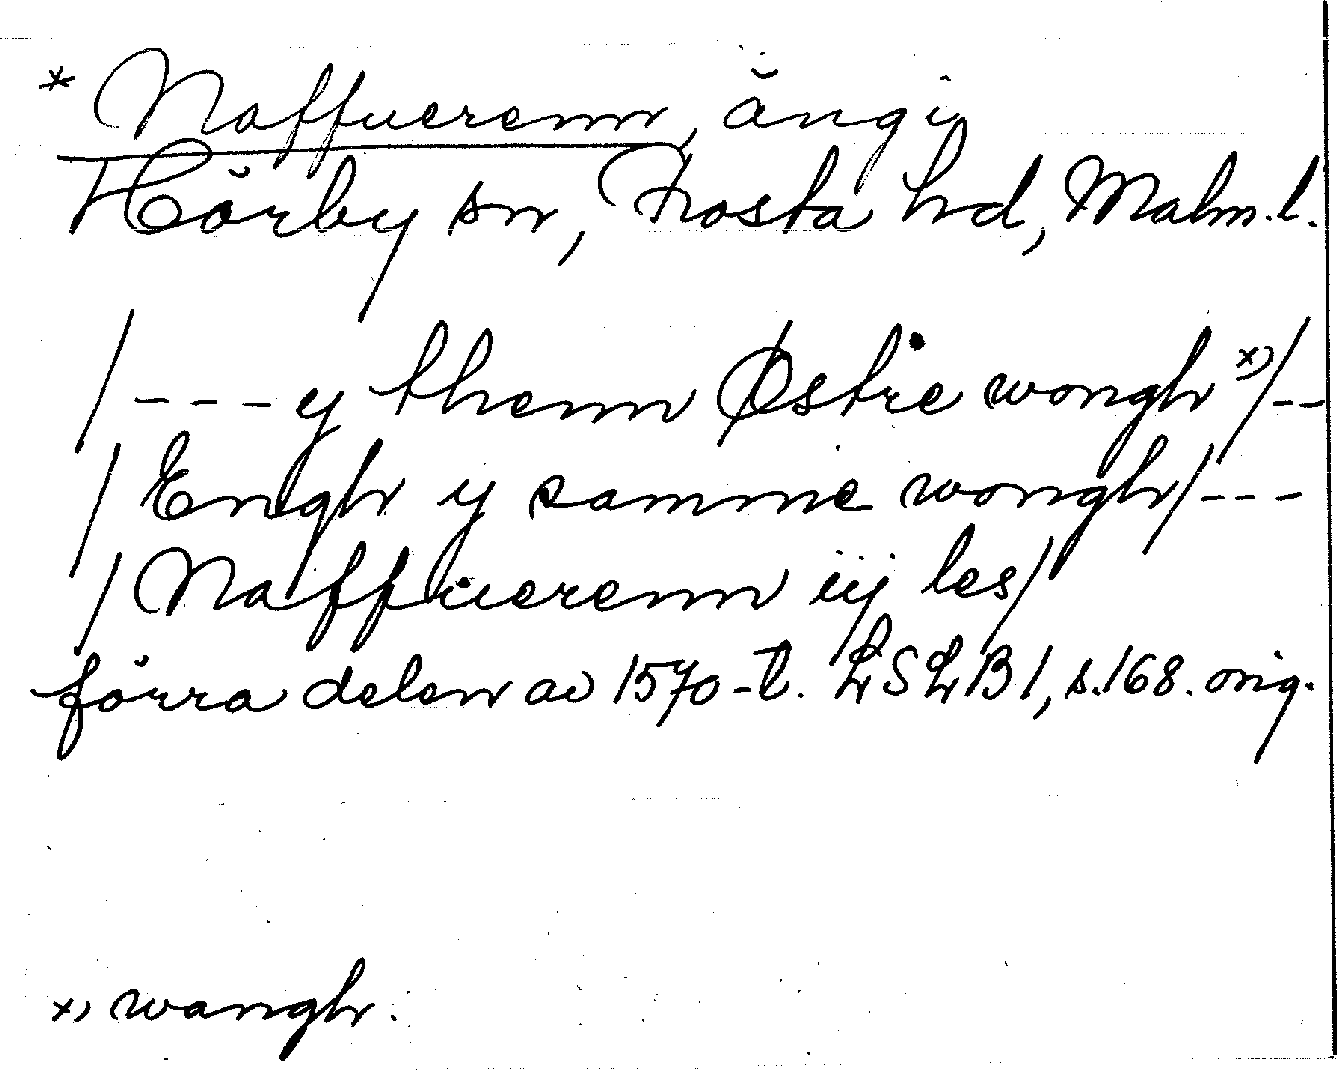 * Naffuerenn, äng i
Hörby sn, Frosta hd, Malm. l.
/---y thenn Østre wongh x)/--
/Engh y samme wongh/---
/Naffuerenn iij les/
förra delen av 1570-t. LSLB 1, s. 168. orig.
x) wangh.